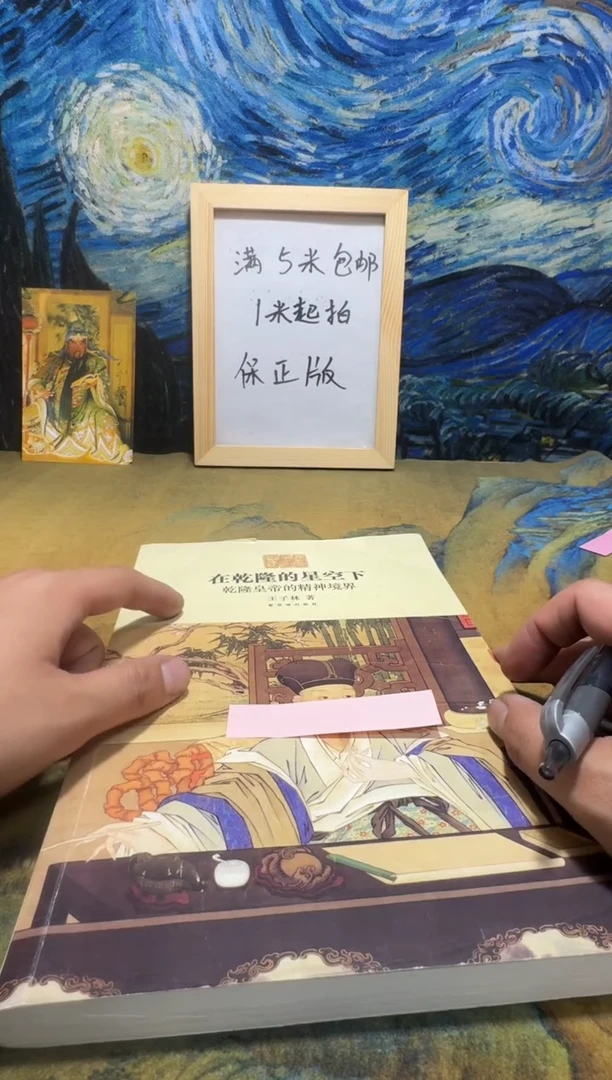 满5米包邮
1米起拍
保正版
在乾隆的星空下
乾隆皇帝的精神境界
王子林 著